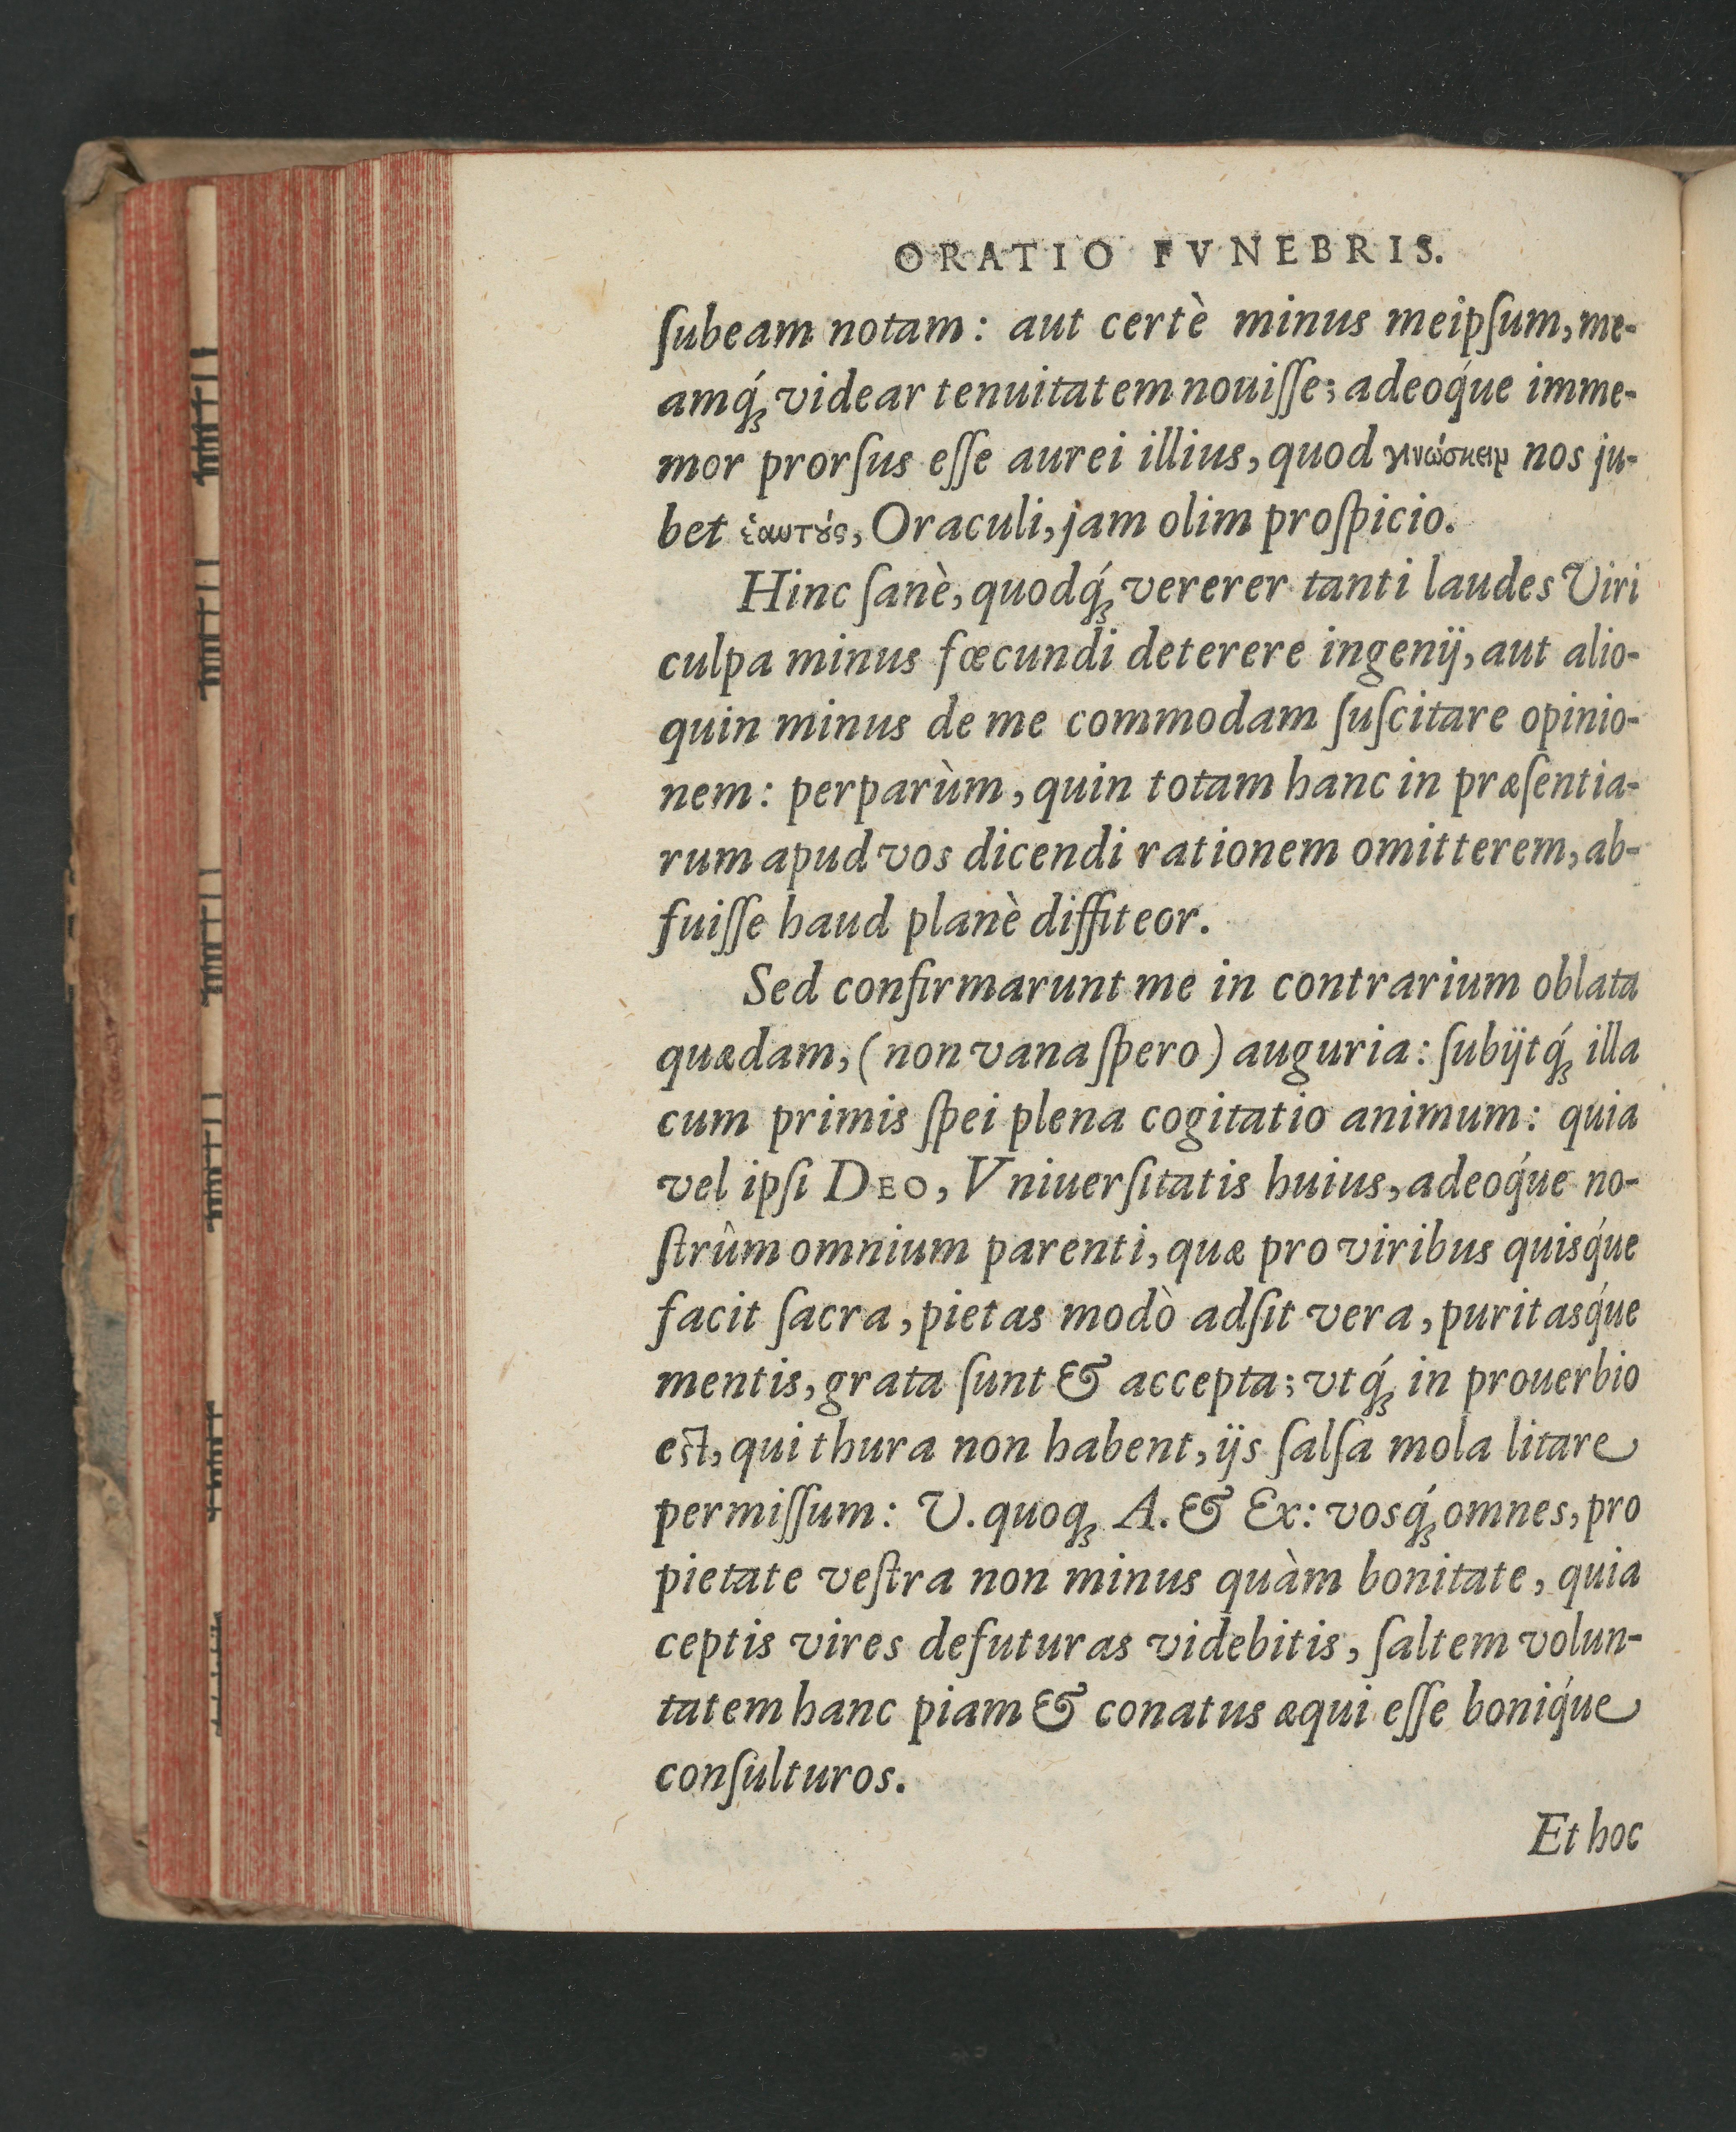 ORATIO FVNEBRIS.
ſubeam notam: aut certè minus meipſum, me-
amq́ꝫ videar tenuitatem nouiſſe; adeoq́ue imme-
mor prorſus eſſe aurei illius, quod γινώσκειν nos ju-
bet ἑαυτούς, Oraculi, jam olim proſpicio.
Hinc ſanè, quodq́ꝫ vererer tanti laudes Viri
culpa minus fœcundi deterere ingenij, aut alio-
quin minus de me commodam ſuſcitare opinio-
nem: perparùm, quin totam hanc in præſentia-
rum apud vos dicendi rationem omitterem, ab-
fuiſſe haud planè diffiteor.
Sed confirmarunt me in contrarium oblata
quædam, (non vana ſpero) auguria: ſubijtq́ꝫ illa
cum primis ſpei plena cogitatio animum: quia
vel ipſi DEO, Vniuerſitatis huius, adeoq́ue no-
ſtrûm omnium parenti, quæ pro viribus quisq́ue
facit ſacra, pietas modò adſit vera, puritasq́ue
mentis, grata ſunt & accepta; vtq́ꝫ in prouerbio
eſt, qui thura non habent, ijs ſalſa mola litare
permiſſum: V. quoqꝫ A. & Ex: vosq́ꝫ omnes, pro
pietate veſtra non minus quàm bonitate, quia
ceptis vires defuturas videbitis, ſaltem volun-
tatem hanc piam & conatus æqui eſſe boniq́ue
conſulturos.
Et hoc